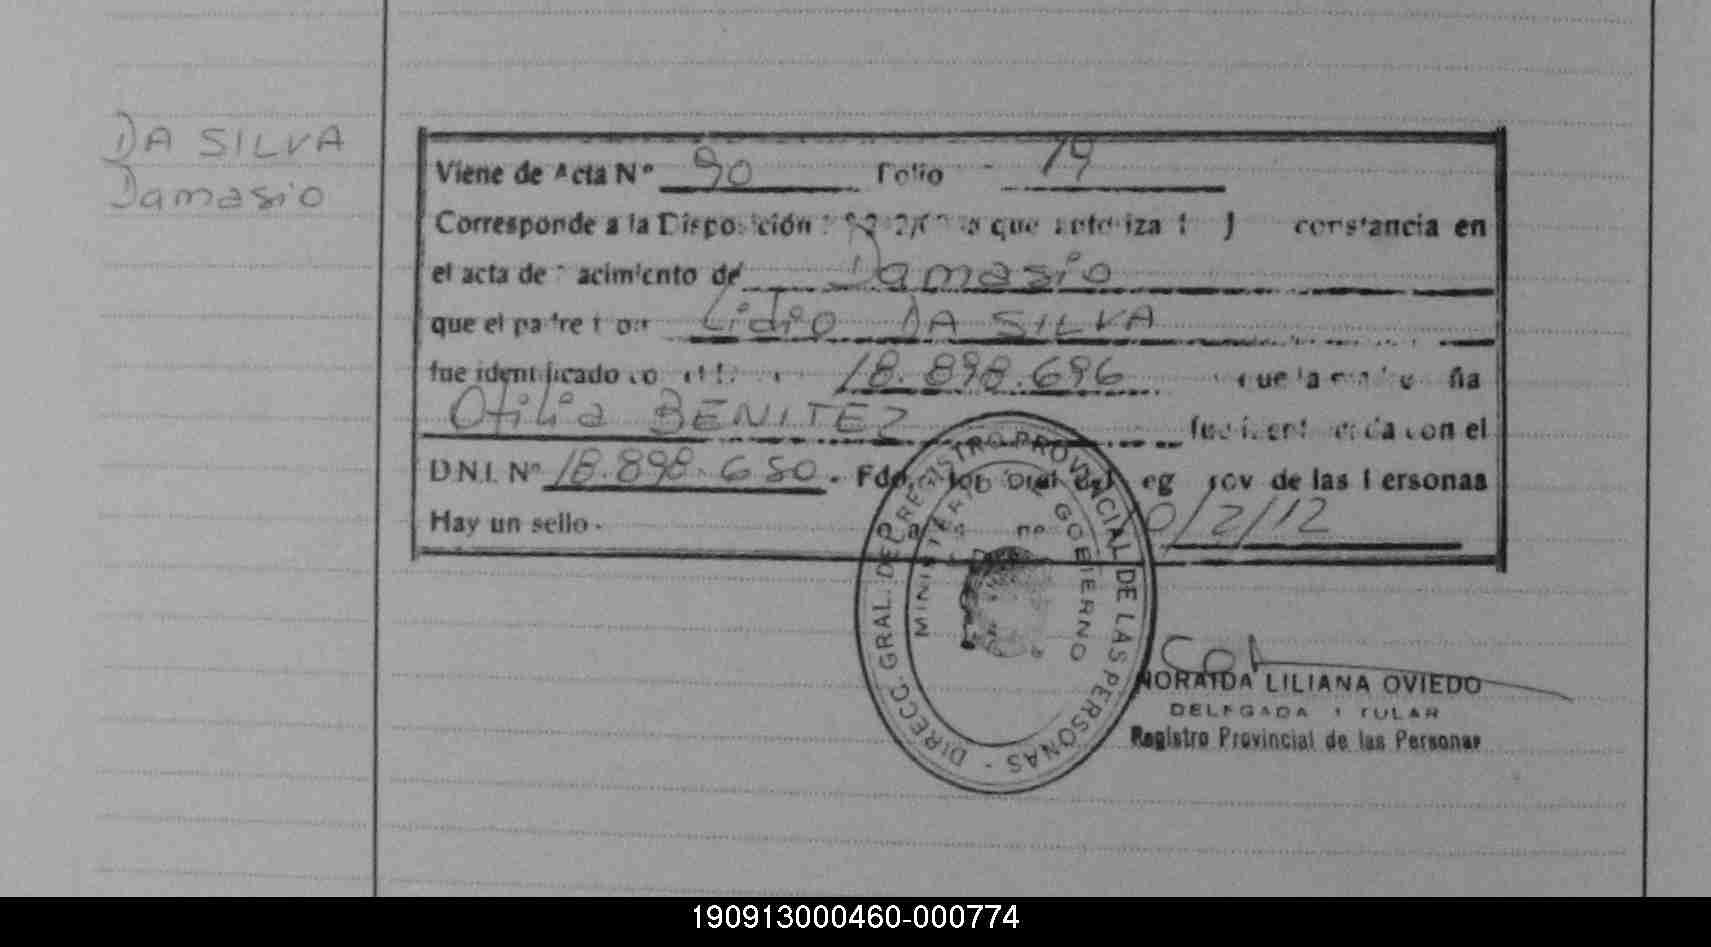 DA SILVA
Damasio
Viene de Acta Nº 90 Folio 79
Corresponde a la Disposición que autoriza constancia en
el acta de nacimiento de Damasio
que el padre Don Lidio DA SILVA
fue identificado 18.898.696 que la madre ña
Otilia BENITEZ fue identificada con el
D.N.I. Nº 18.898.680. Fdo. Reg Prov de las Personas
Hay un sello. 0/2/12
DIRECC. GRAL. DEL REGISTRO PROVINCIAL DE LAS PERSONAS
MINISTERIO DE GOBIERNO
NORAIDA LILIANA OVIEDO
DELEGADA TITULAR
Registro Provincial de las Personas
190913000460-000774